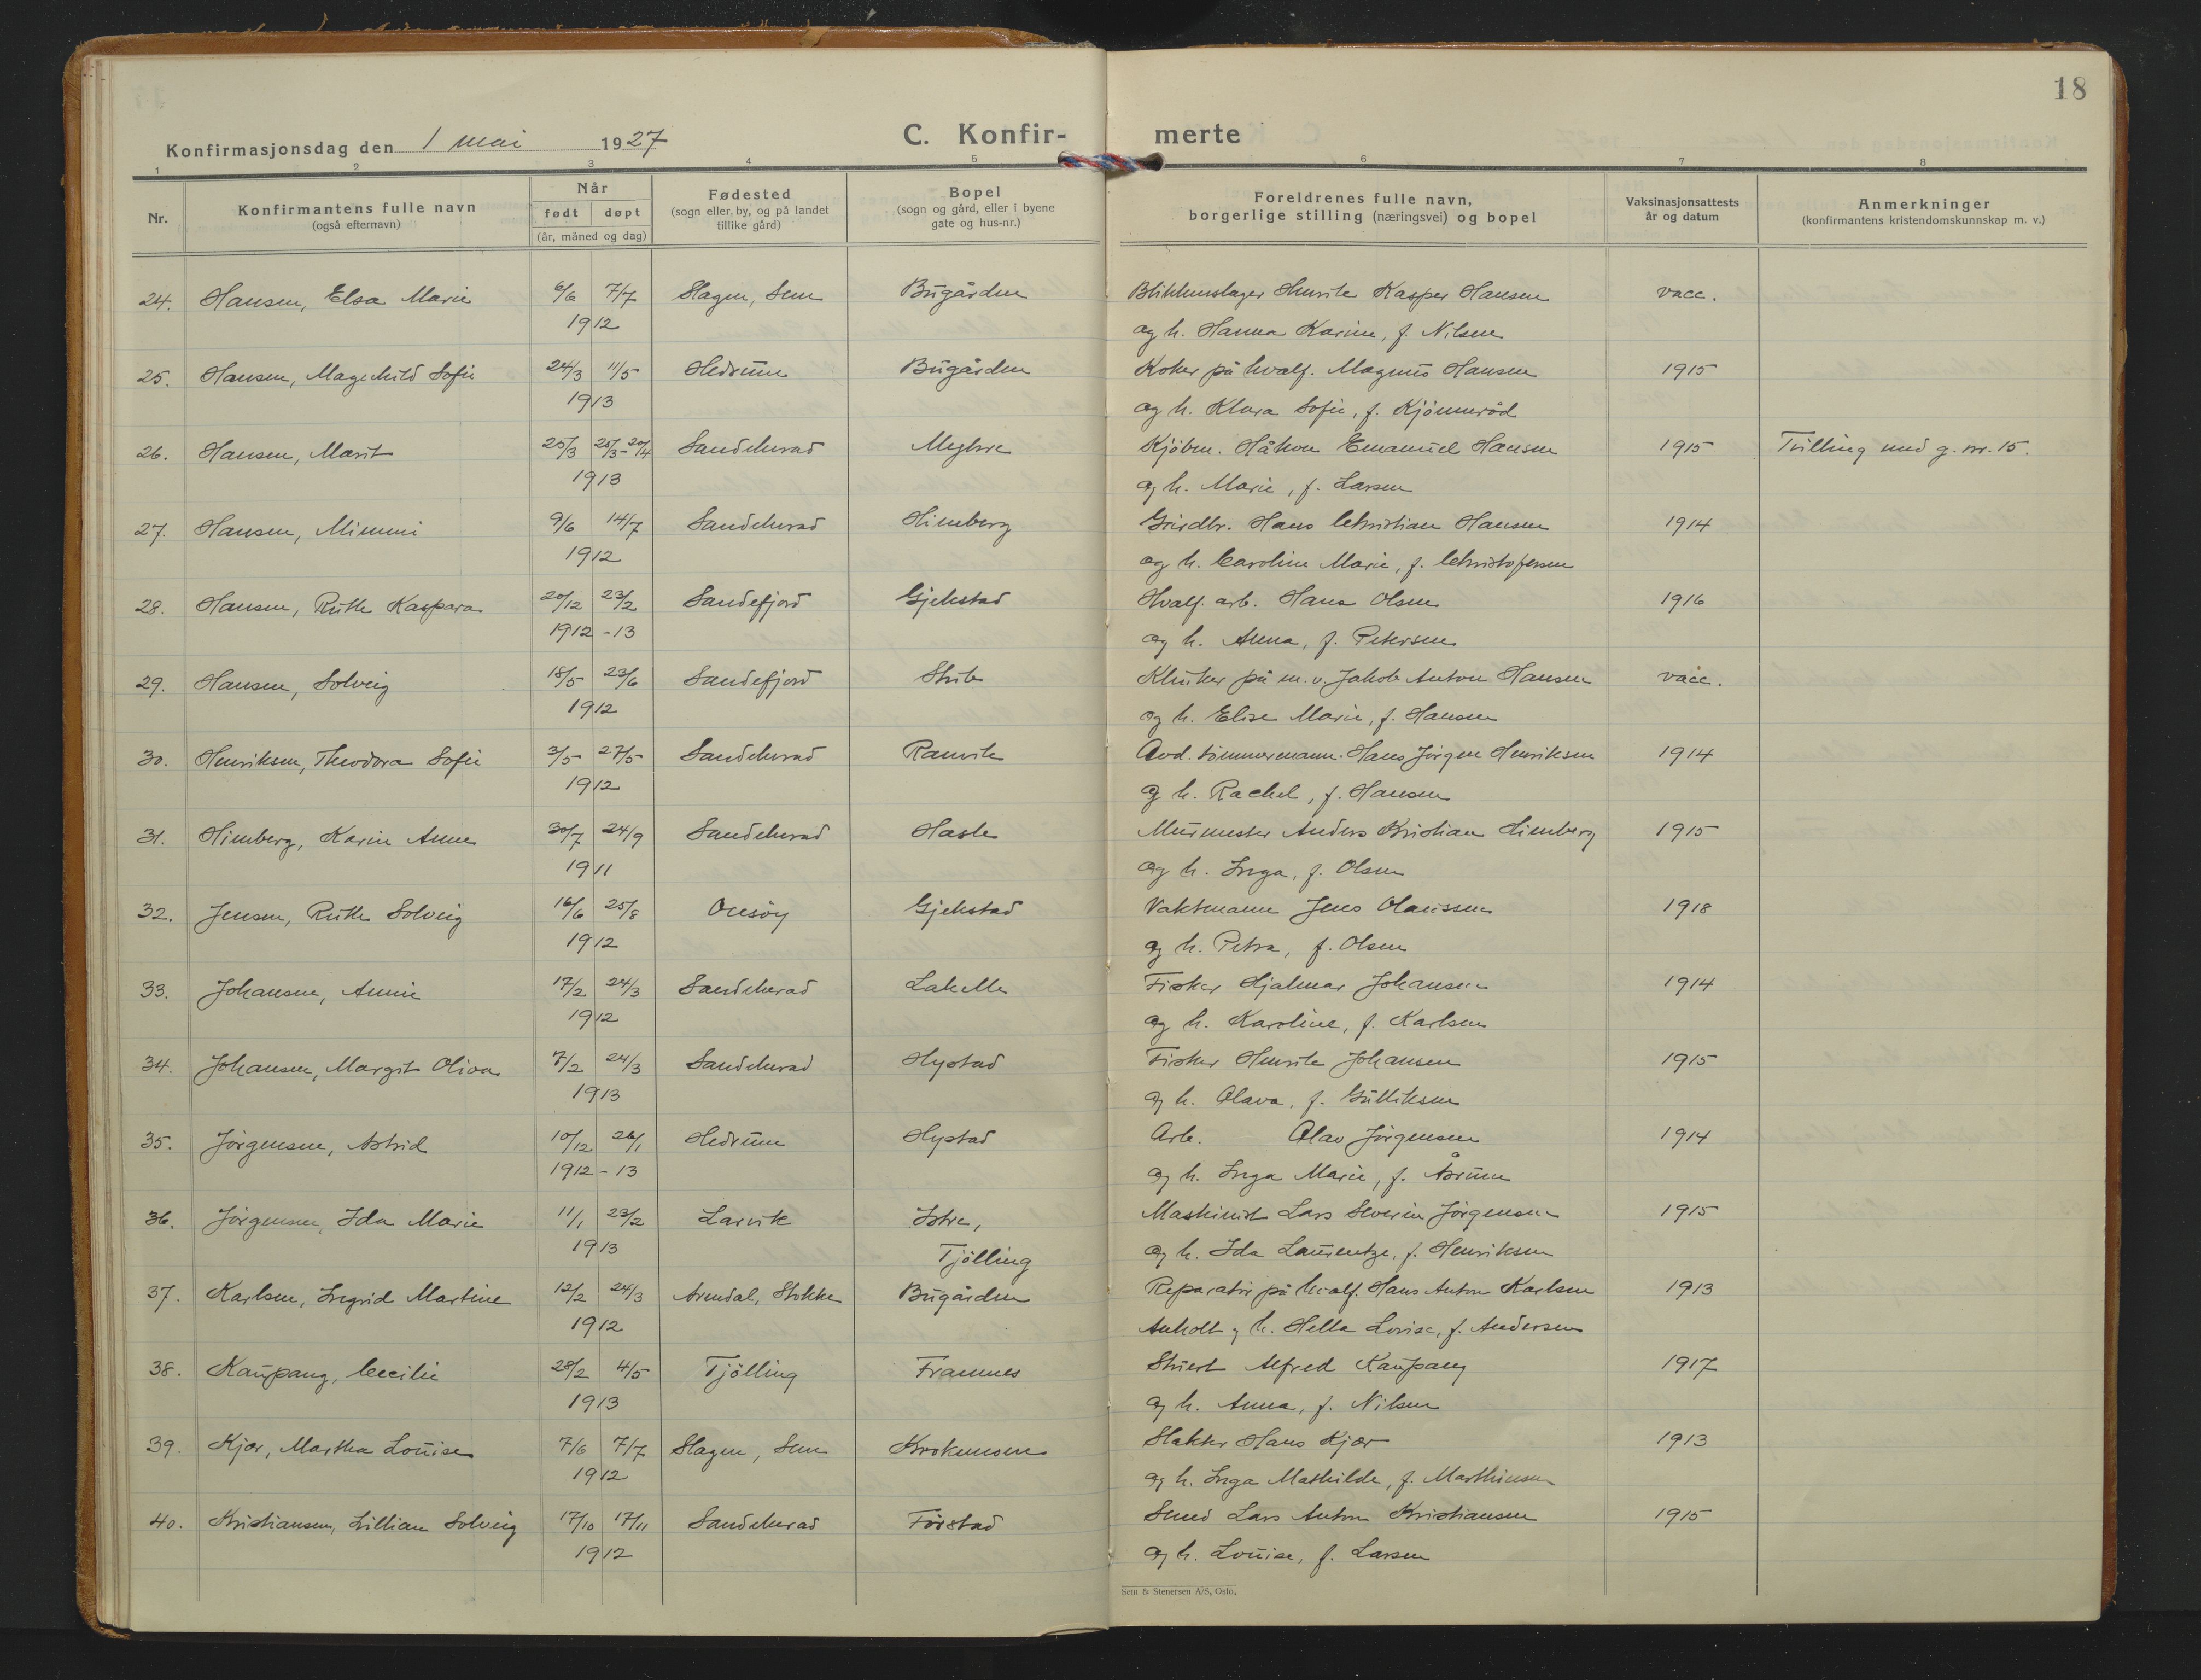 18
Konfirmasjonsdag den 1 mai 1927
C. Konfir- merte
1 2 3 4 5 6 7 8
Nr.
Konfirmantens fulle navn
(også efternavn)
Når
født døpt
(år, måned og dag)
Fødested
(sogn eller by, og på landet
tillike gård)
Bopel
(sogn og gård, eller i byene
gate og hus-nr.)
Foreldrenes fulle navn,
borgerlige stilling (næringsvei) og bopel
Vaksinasjonsattests
år og datum
Anmerkninger
(konfirmantens kristendomskunnskap m. v.)
24. Hansen, Elsa Marie 6/6 7/7 Slagen, Sem Bugården Blikkenslager Henrik Kasper Hansen vacc.
1912 og h. Hanna Karine, f. Nilsen
25. Hansen, Magnhild Sofie 24/3 11/5 Hedrum Bugården Koker på hvalf. Magnus Hansen 1915
1913 og h. Klara Sofie, f. Kjönnerød
26. Hansen, Marit 25/3 25/3-20/4 Sandeherad Meglere Kjöbm. Håkon Emanuel Hansen 1915 Tvilling med g. nr. 15.
1913 og h. Marie, f. Larsen
27. Hansen, Mimmi 9/6 14/7 Sandeherad Himberg Gårdbr. Hans Christian Hansen 1914
1912 og h. Caroline Marie, f. Christofersen
28. Hansen, Ruth Kaspara 20/12 23/2 Sandefjord Gjekstad Hvalf. arb. Hans Olsen 1916
1912-13 og h. Anna, f. Petersen
29. Hansen, Solveig 18/5 23/6 Sandefjord Stub Klinker på m. v. Jakob Anton Hansen vacc.
1912 og h. Elise Marie, f. Hansen
30. Henriksen, Theodora Sofie 3/5 27/5 Sandeherad Ranvik Avd. tömmermann Hans Jörgen Henriksen 1914
1912 og h. Rachel, f. Hansen
31. Himberg, Karin Anne 30/7 24/9 Sandeherad Hasle Murmester Anders Kristian Himberg 1915
1911 og h. Inga, f. Olsen
32. Jensen, Ruth Solveig 16/6 25/8 Onsöy Gjekstad Vaktmann Jens Olaussen 1918
1912 og h. Petra, f. Olsen
33. Johansen, Annie 17/2 24/3 Sandeherad Lakelle Fisker Hjalmar Johansen 1914
1912 og h. Karoline, f. Karlsen
34. Johansen, Margit Oliva 7/2 24/3 Sandeherad Hystad Fisker Henrik Johansen 1915
1913 og h. Olava, f. Gulliksen
35. Jörgensen, Astrid 10/12 26/1 Hedrum Hystad Arb. Olav Jörgensen 1914
1912-13 og h. Inga Marie, f. Åsrum
36. Jörgensen, Ida Marie 11/1 23/2 Larvik Istre, Maskinist Lars Severin Jörgensen 1915
1913 Tjölling og h. Ida Laurentze, f. Henriksen
37. Karlsen, Ingrid Martine 12/2 24/3 Arendal, Stokke Bugården Reparatör på hvalf. Hans Anton Karlsen 1913
1912 Anholt og h. Hella Lovise, f. Andersen
38. Kaupang, Cecilie 28/2 4/5 Tjölling Framnes Stuert Alfred Kaupang 1917
1913 og h. Anna, f. Nilsen
39. Kjær, Martha Louise 7/6 7/7 Slagen, Sem Krokemoen Slakter Hans Kjær 1913
1912 og h. Inga Mathilde, f. Marthinsen
40. Kristiansen, Lillian Solveig 17/10 17/11 Sandeherad Forstad Smed Lars Anton Kristiansen 1915
1912 og h. Louise, f. Larsen
Sem & Stenersen A/S, Oslo.